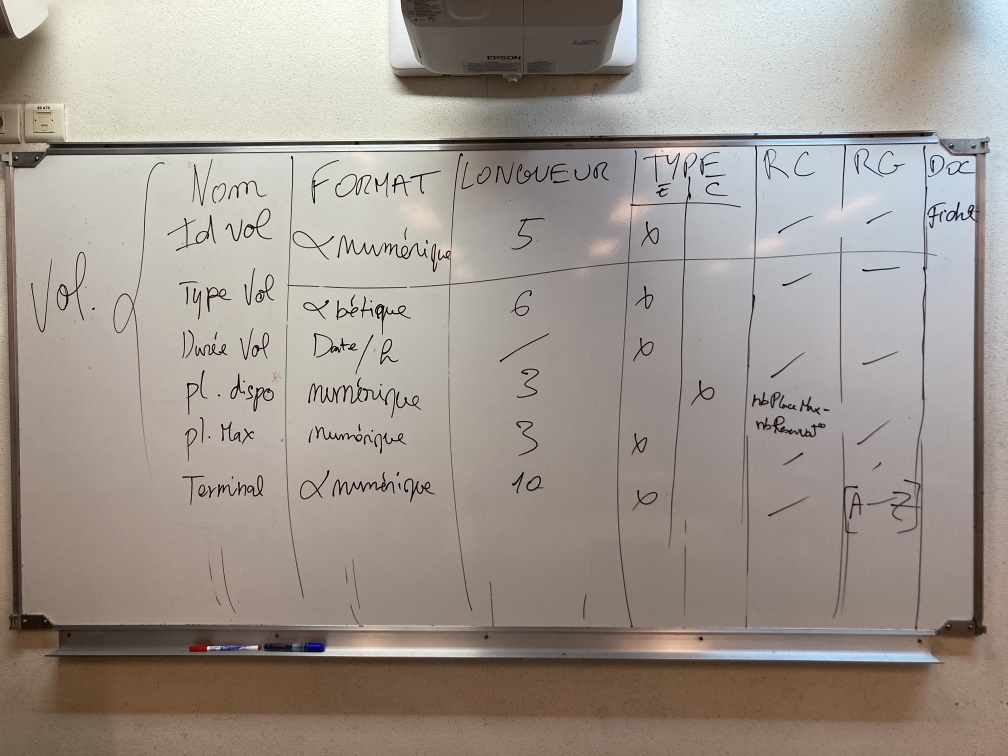 EPSON
Nom FORMAT LONGUEUR TYPE RC RG Doc
E C
Id Vol αnumérique 5 x / / Fichet
Vol.
Type Vol αbétique 6 x / —
Durée Vol Date/h / x / /
pl. dispo* numérique 3 x nbPlaceMax-
nbReservat°
pl. Max numérique 3 x / /
Terminal αnumérique 10 x / [A—Z]